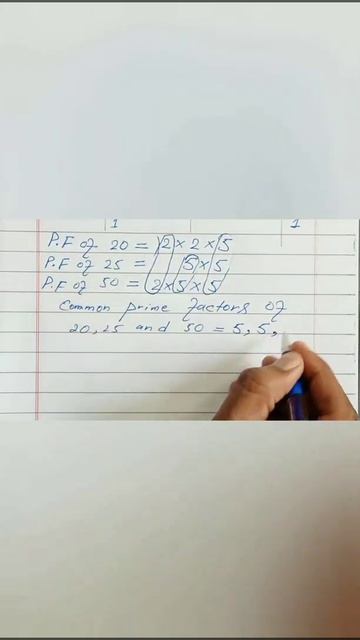 1 1
P.F of 20 = 2 × 2 × 5
P.F of 25 = 5 × 5
P.F of 50 = 2 × 5 × 5
Common prime factors of
20, 25 and 50 = 5, 5,